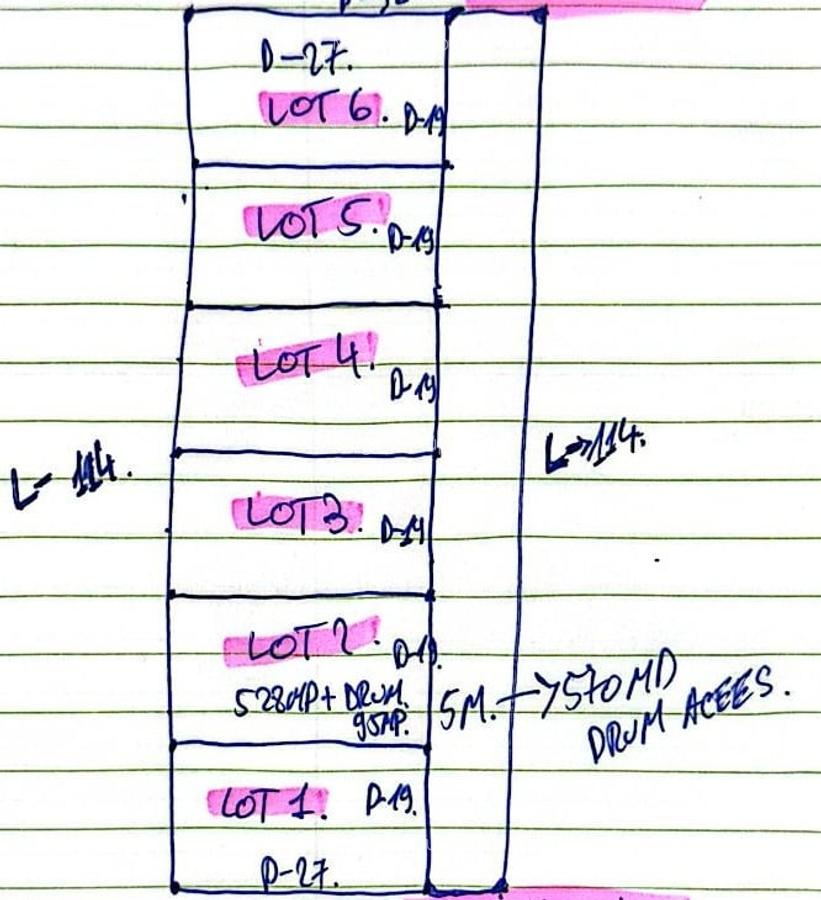 D-27.
LOT 6. D-19
LOT 5. D-19
LOT 4. D-19
L- 114.
L→114.
LOT 3. D-19
LOT 2. D-19.
528MP + DRUM.
95MP.
5M. → 570MD
DRUM ACEES.
LOT 1. D-19.
D-27.